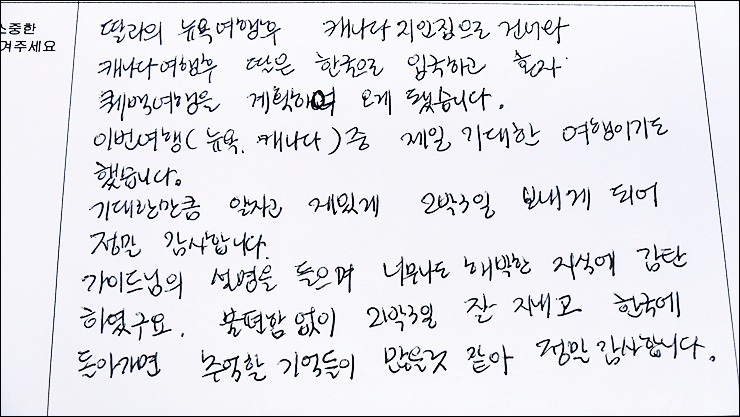 소중한
겨주세요
딸과의 뉴욕여행후 캐나다 지인집으로 건너와
캐나다여행후 딸은 한국으로 입국하고 혼자
퀘백여행을 계획하여 오게 됐습니다.
이번여행(뉴욕, 캐나다)중 제일 기대한 여행이기도
했습니다.
기대한만큼 알차고 재밌게 2박3일 보내게 되어
정말 감사합니다.
가이드님의 설명을 들으며 너무나도 해박한 지식에 감탄
하였구요. 불편함 없이 2박3일 잘 지내고 한국에
돌아가면 추억할 기억들이 많을것 같아 정말 감사합니다.